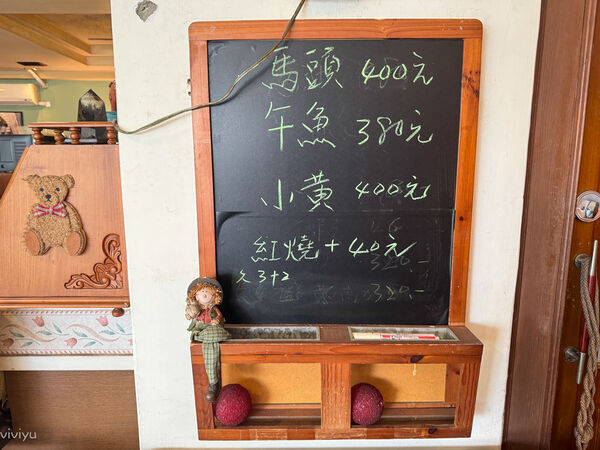 馬頭 400元
午魚 380元
小黃 400元
紅燒+40元
3+2
320.-
viviyu